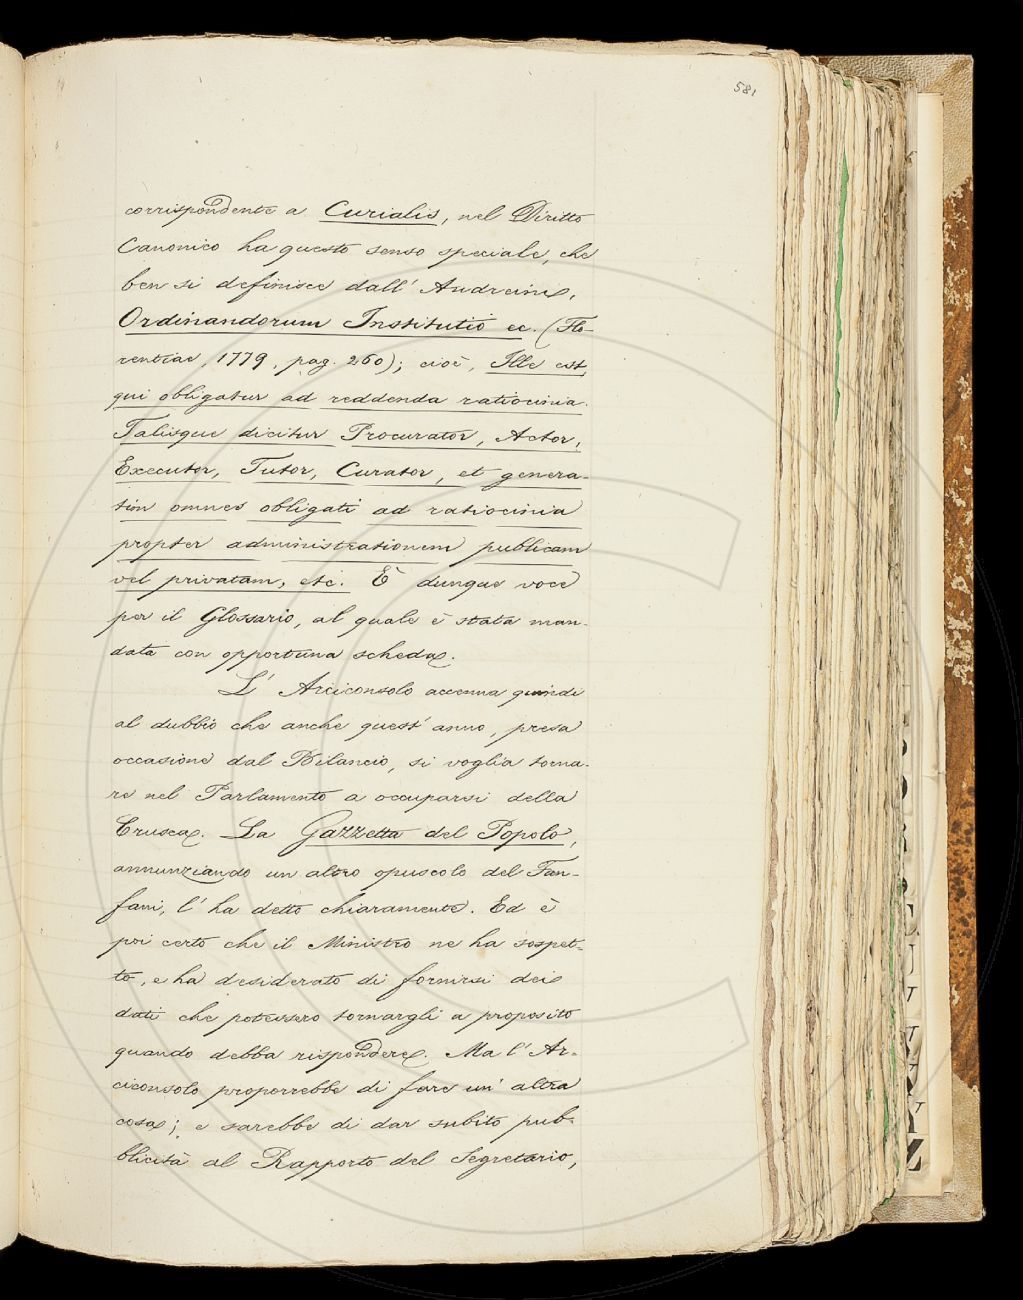 581
corrispondente a Curialis, nel Diritto
Canonico ha questo senso speciale, che
ben si definisce dall' Andreini,
Ordinandorum Institutio ec. (Flo-
rentiae, 1779, pag. 260); cioè, Ille est
qui obligatur ad reddenda ratiocinia.
Talisque dicitur Procurator, Actor,
Executor, Tutor, Curator, et genera-
tim omnes obligati ad ratiocinia
propter administrationem publicam
vel privatam, etc. È dunque voce
per il Glossario, al quale è stata man-
data con opportuna scheda.
L' Arciconsolo accenna quindi
al dubbio che anche quest' anno, presa
occasione dal Bilancio, si voglia torna-
re nel Parlamento a occuparsi della
Crusca. La Gazzetta del Popolo,
annunziando un altro opuscolo del Fan-
fani, l' ha detto chiaramente. Ed è
poi certo che il Ministro ne ha sospet-
to, e ha desiderato di fornirsi dei
dati che potessero tornargli a proposito
quando debba rispondere. Ma l' Ar-
ciconsolo proporrebbe di fare un' altra
cosa; e sarebbe di dar subito pub-
blicità al Rapporto del Segretario,